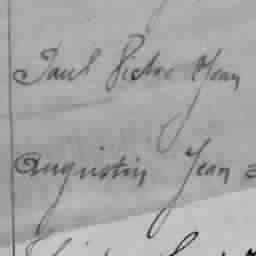 Paul Victor Jean
Augustin Jean =